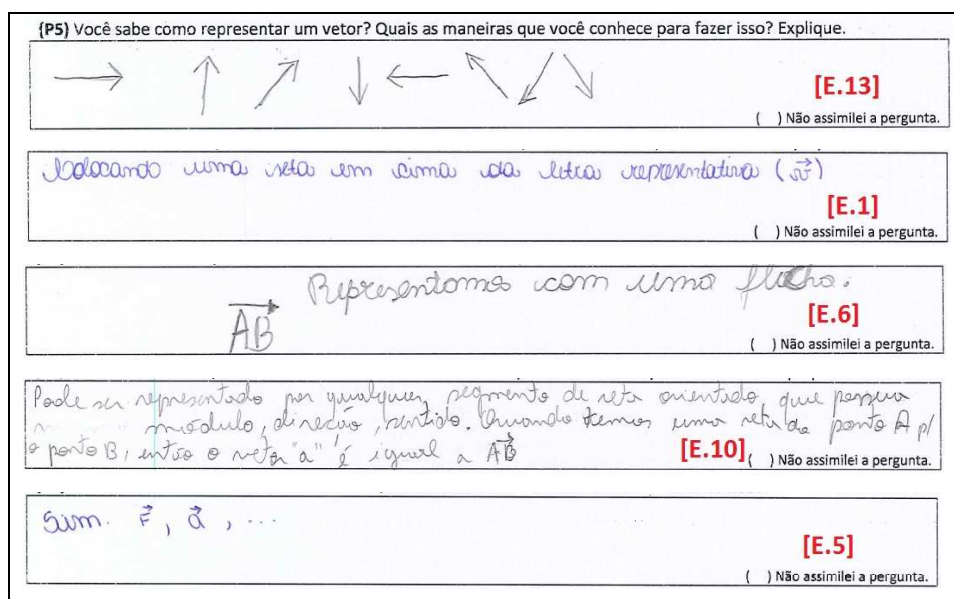 (P5) Você sabe como representar um vetor? Quais as maneiras que você conhece para fazer isso? Explique.
[E.13]
( ) Não assimilei a pergunta.
Colocando uma seta em cima da letra representativa (v⃗)
[E.1]
( ) Não assimilei a pergunta.
Representamos com uma flecha.
A⃗B⃗
[E.6]
( ) Não assimilei a pergunta.
Pode ser representado por qualquer segmento de reta orientado, que possua
módulo, direção, sentido. Quando temos uma reta do ponto A p/
o ponto B, então o vetor "a" é igual a A⃗B⃗
[E.10] ( ) Não assimilei a pergunta.
Sim. F⃗, a⃗, ...
[E.5]
( ) Não assimilei a pergunta.